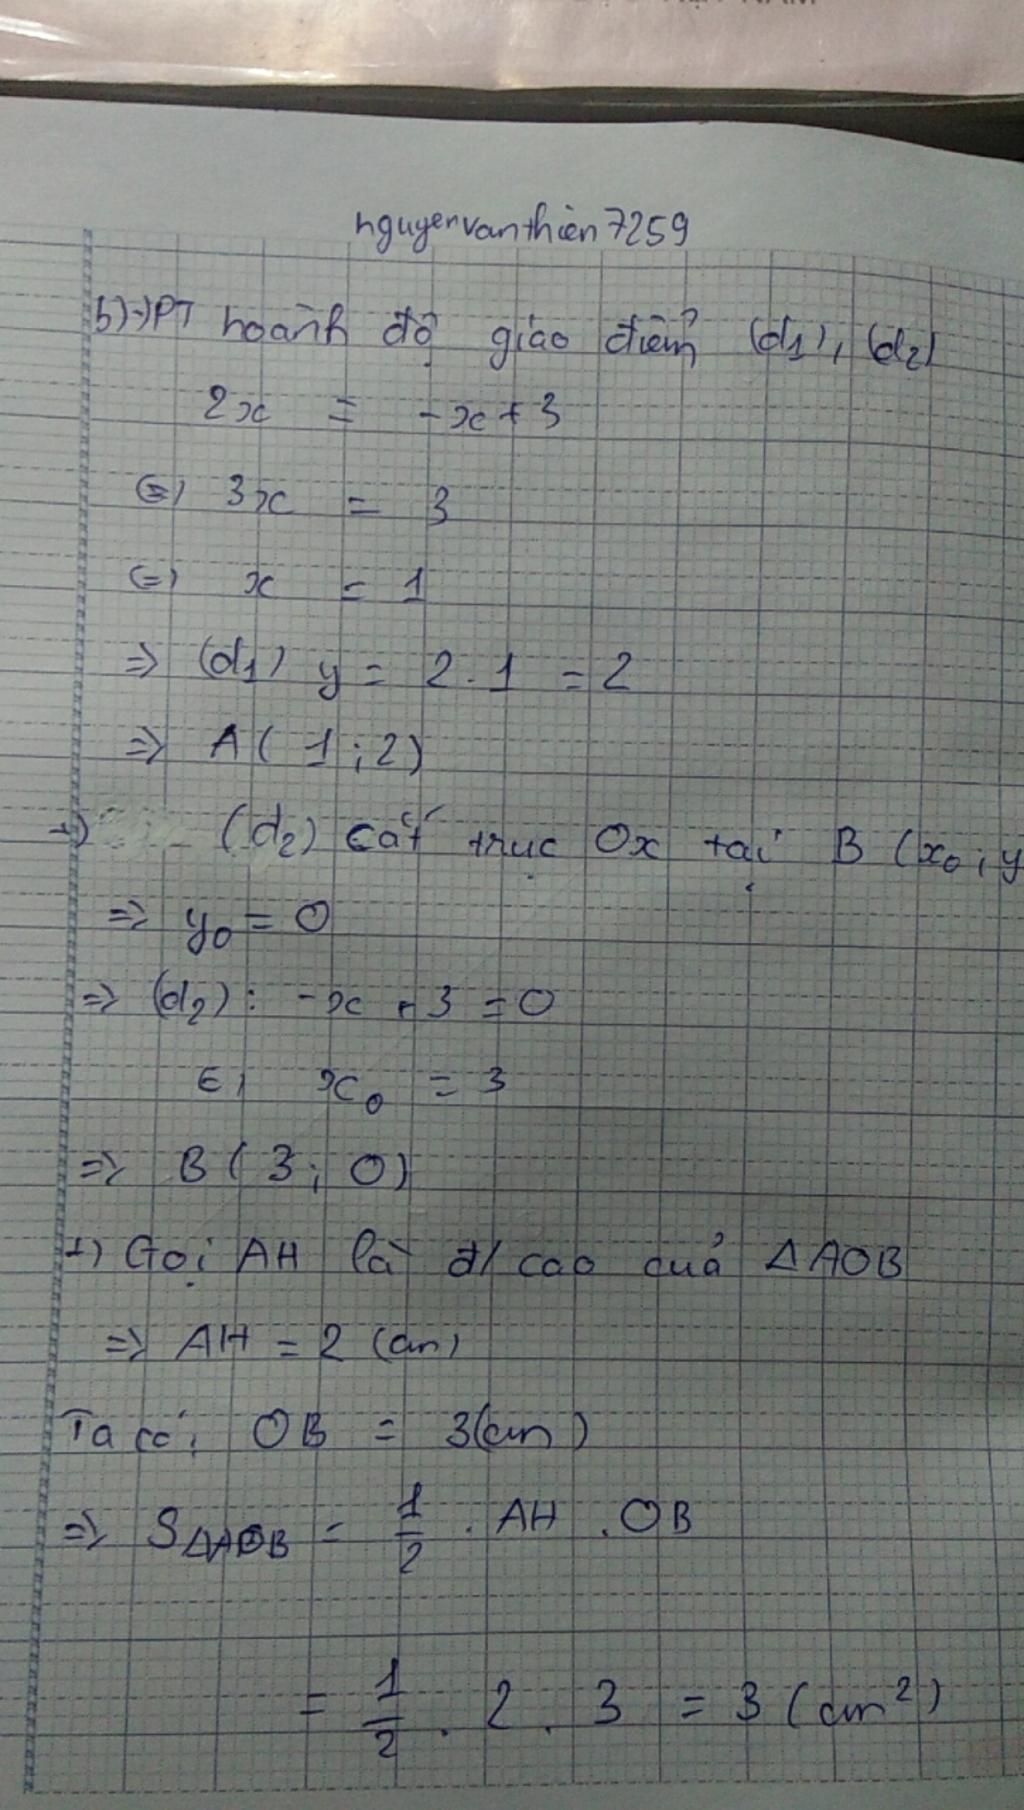 nguyenvanthien7259
b) +) PT hoành độ giao điểm (d1), (d2)
2x = -x + 3
<=> 3x = 3
<=> x = 1
=> (d1) y = 2 . 1 = 2
=> A ( 1 ; 2 )
+) (d2) cắt trục Ox tại B (x0 ; y
=> y0 = 0
=> (d2) : -x + 3 = 0
<=> x0 = 3
=> B ( 3 ; 0 )
+) Gọi AH là đ/ cao của ΔAOB
=> AH = 2 (cm)
Ta có: OB = 3 (cm)
=> SΔAOB = 1/2 . AH . OB
= 1/2 . 2 . 3 = 3 (cm²)